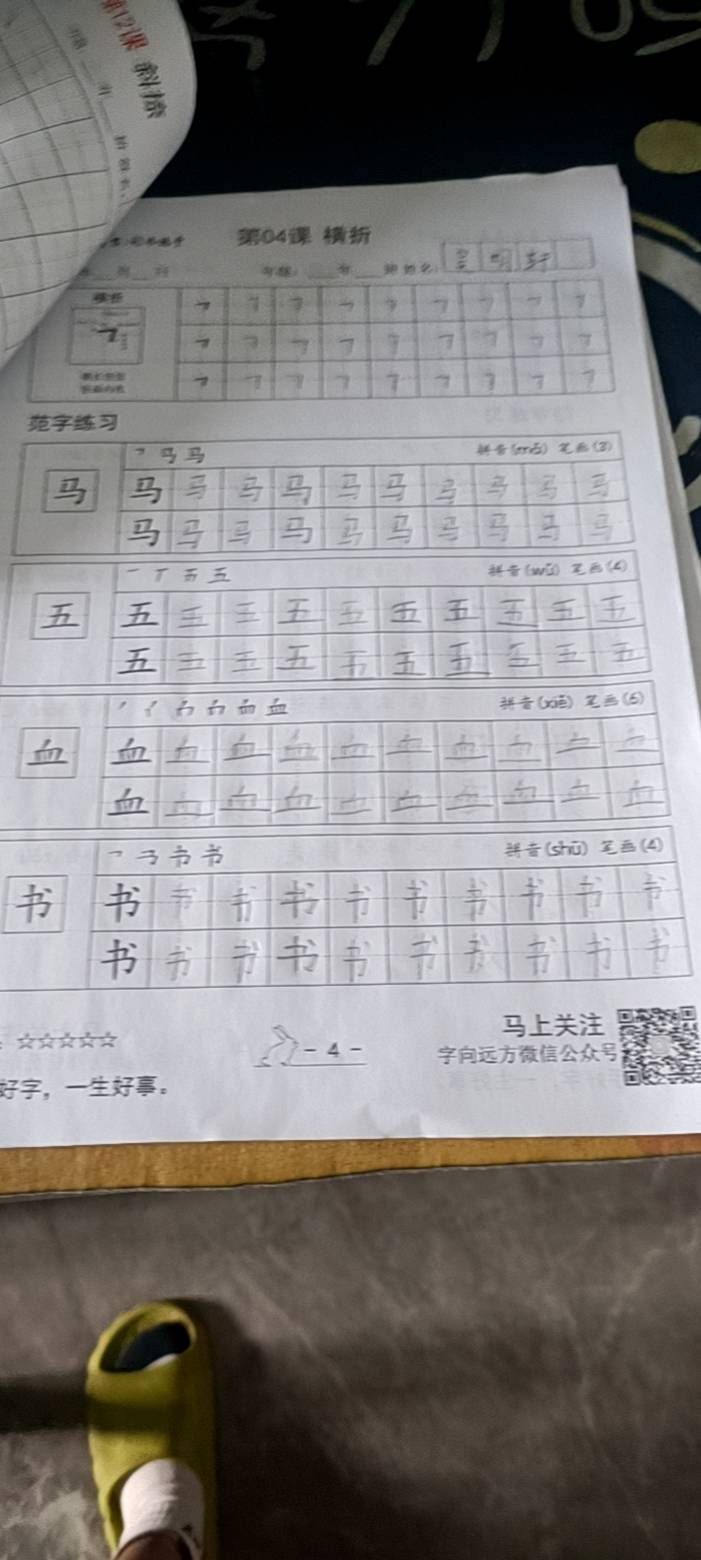 第12课 斜捺
第04课 横折
明轩
横折
范字练习
马 马
拼音(mǎ) 笔画(3)
马 马 马 马 马 马 马 马 马 马 马
马 马 马 马 马 马 马 马 马 马
一 丅 五 五
拼音(wǔ) 笔画(4)
五 五 五 五 五 五 五 五 五 五 五
五 五 五 五 五 五 五 五 五 五
血
拼音(xiě) 笔画(6)
血 血 血 血 血 血 血 血 血 血 血
血 血 血 血 血 血 血 血 血 血
书
拼音(shū) 笔画(4)
书 书 书 书 书 书 书 书 书 书 书
书 书 书 书 书 书 书 书 书 书
☆☆☆☆☆
- 4 -
马上关注
字向远方微信公众号
好字，一生好事。